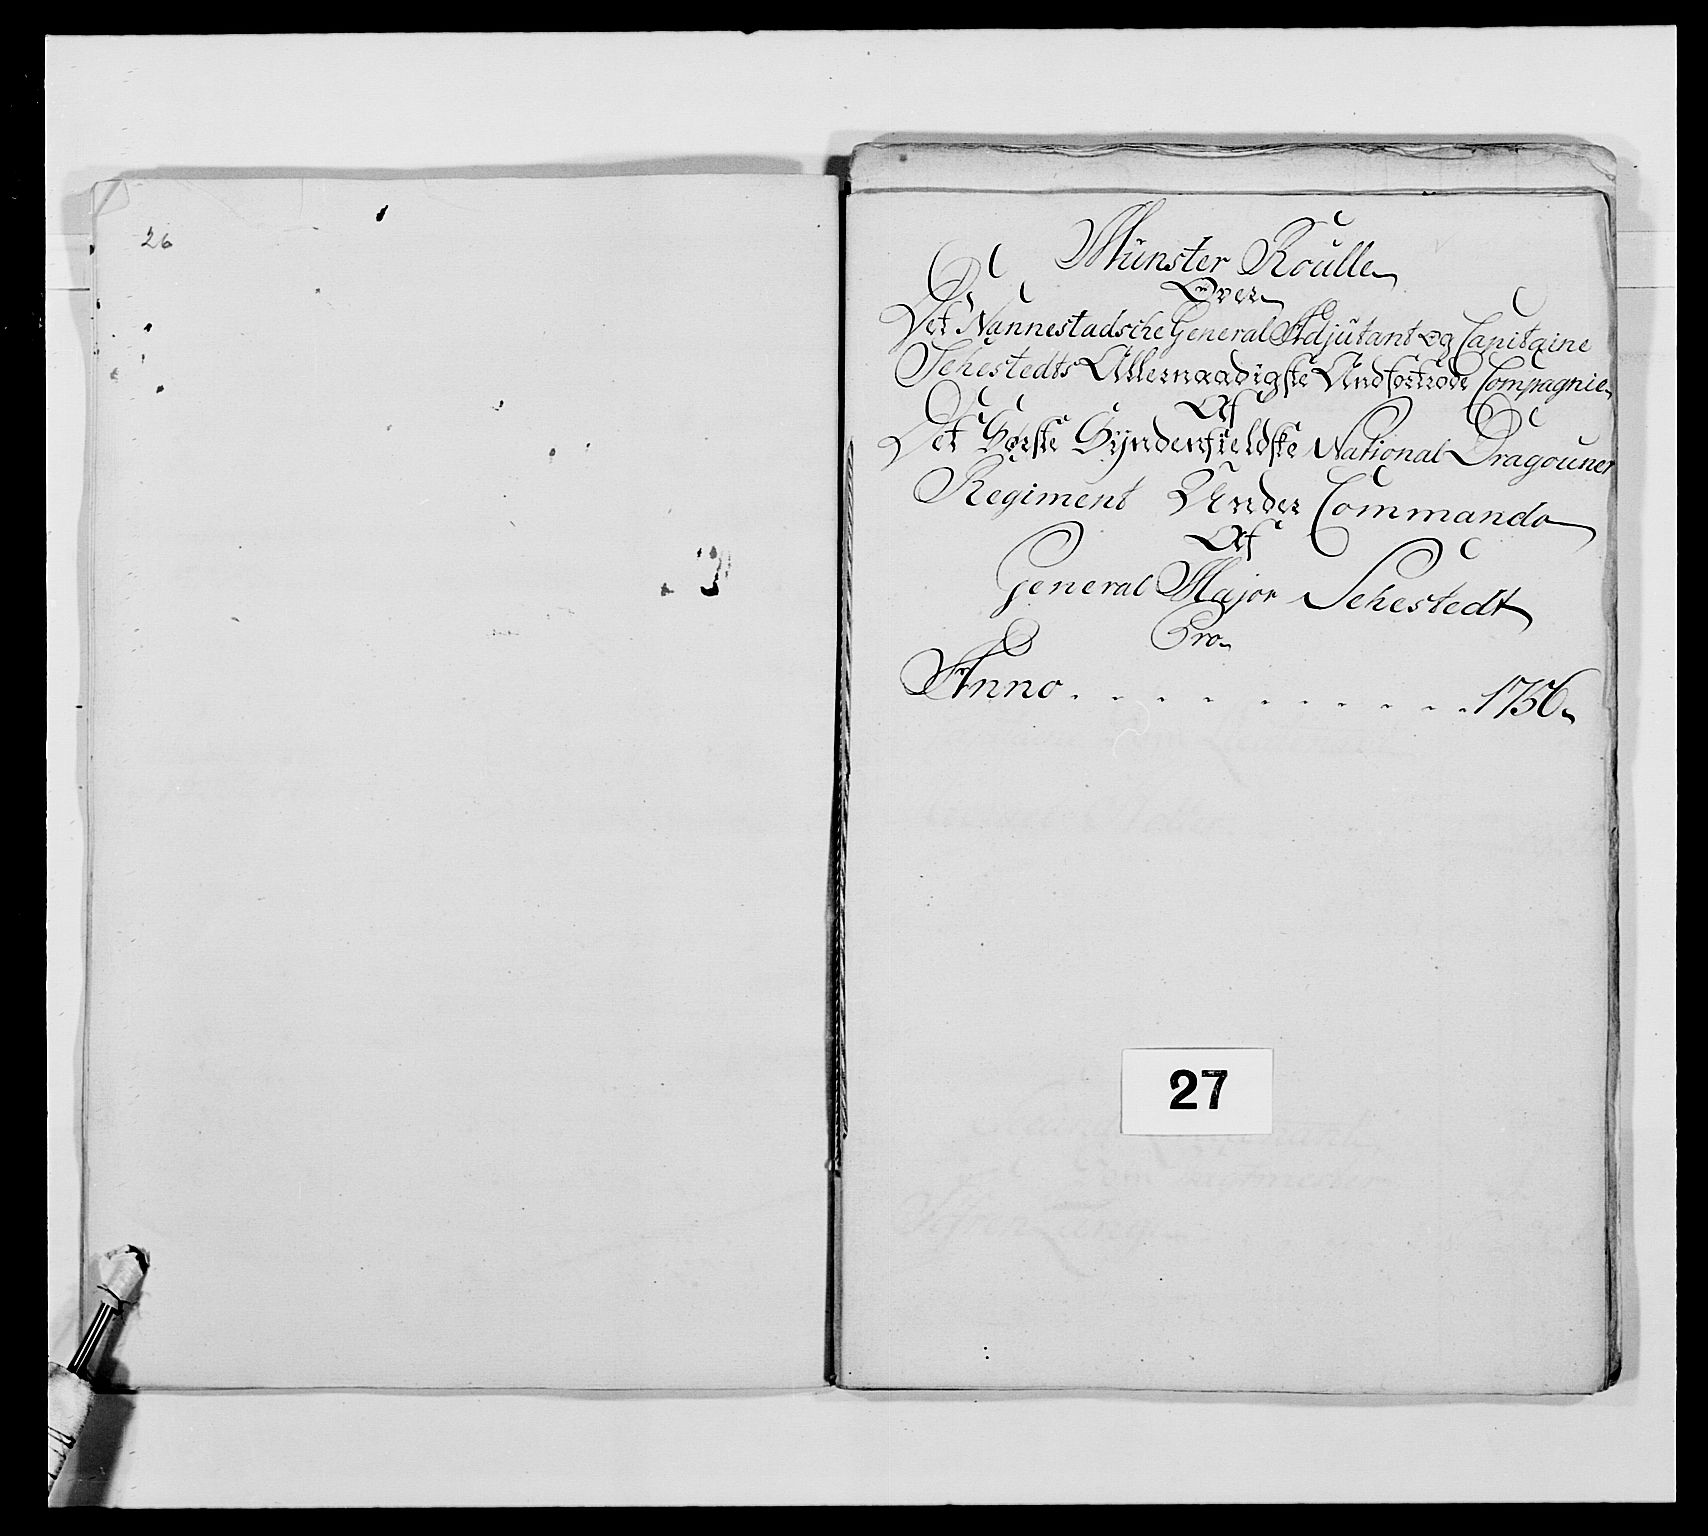 26
Münster Roulle
Over
Det Nannestadsche General Adjutant og Capitaine
Sehestedts Allernaadigste Andfortrode Compagnie
Af
Det Norske Syndenfieldske National Dragouner
Regiment Under Commando
Af
General Major Sehestedt
Pro
Anno . . . . . . . . . 1756
27